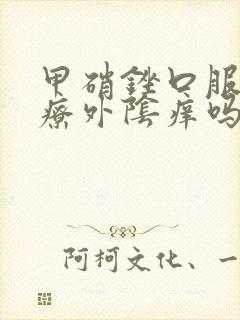 甲硝銼口服
療外陰痒吗
阿柯文化、一